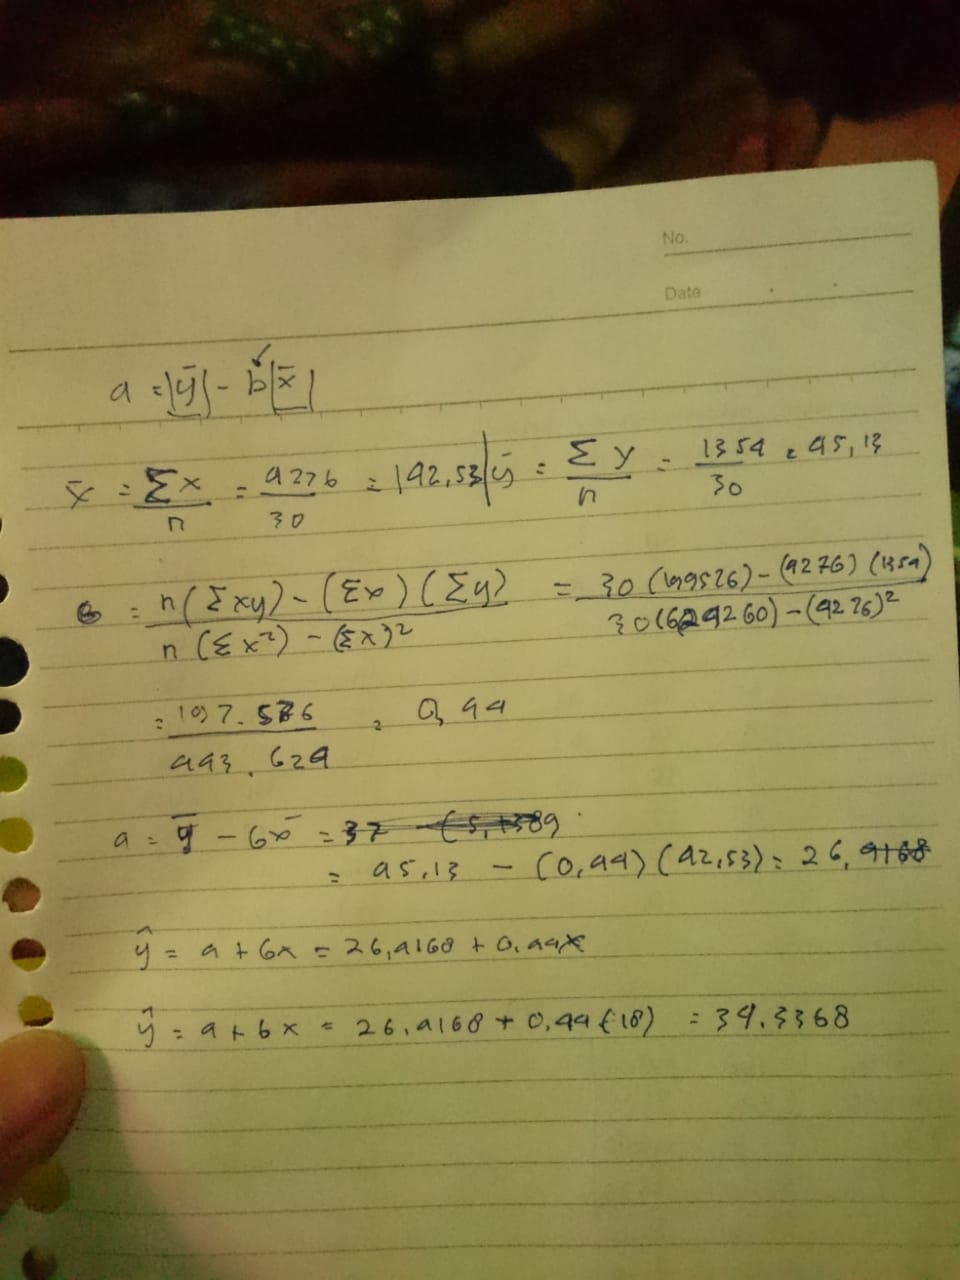 No.
Date
a = |ȳ| - b|x̄|
x̄ = Σx/n = 4276/30 = 142,53 | ȳ = Σy/n = 1354/30 = 45,13
b = n(Σxy) - (Σx)(Σy) / n(Σx²) - (Σx)² = 30(199526) - (4276)(1354) / 30(624260) - (4276)²
= 197.576 / 443.624 = 0,44
a = ȳ - bx̄ = 37
= 45,13 - (0,44)(42,53) = 26,4168
ŷ = a + bx = 26,4168 + 0,44x
ŷ = a + bx = 26,4168 + 0,44(18) = 34,3368